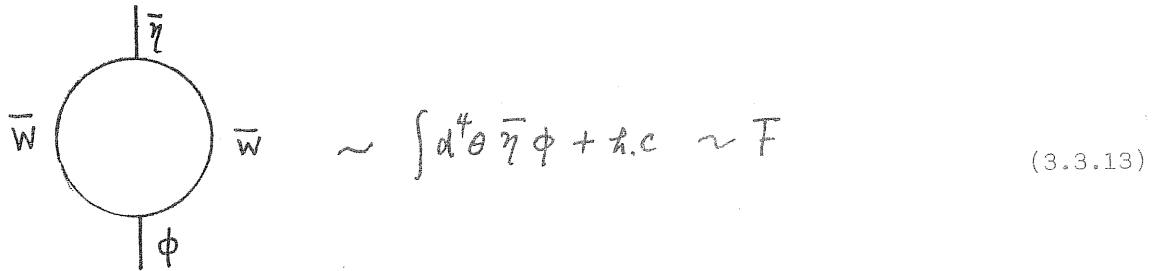 η̄
W̄ W̄ ~ ∫d⁴θ η̄ φ + h.c ~ F̄ (3.3.13)
φ